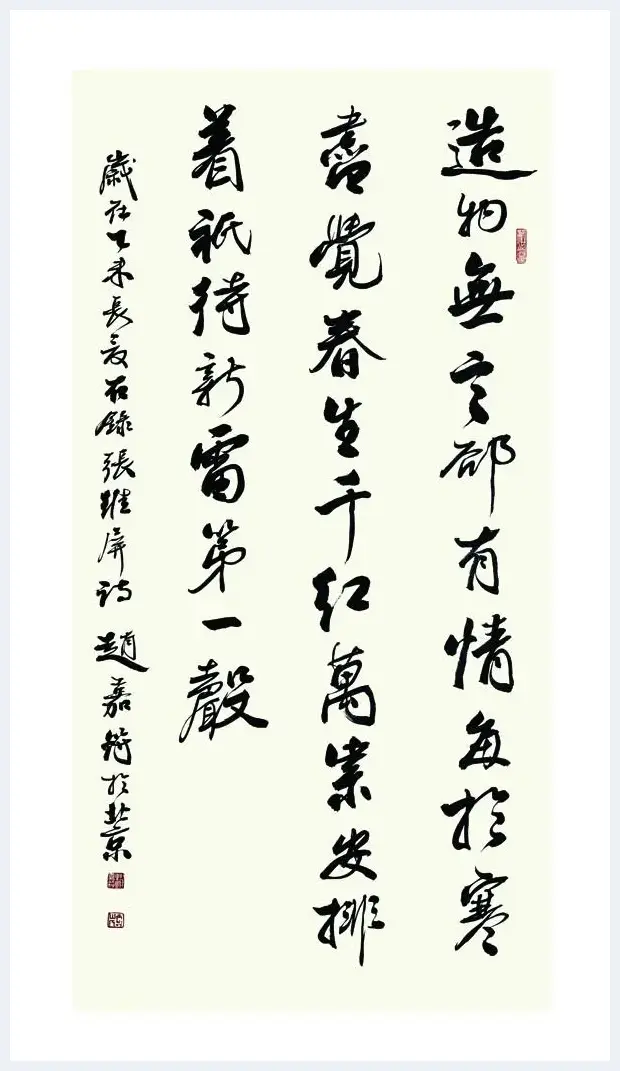 造物無言卻有情每於寒
盡覺春生千紅萬紫安排
着祇待新雷第一聲
歲在乙未長夏右錄張維屏詩 趙嘉於北京